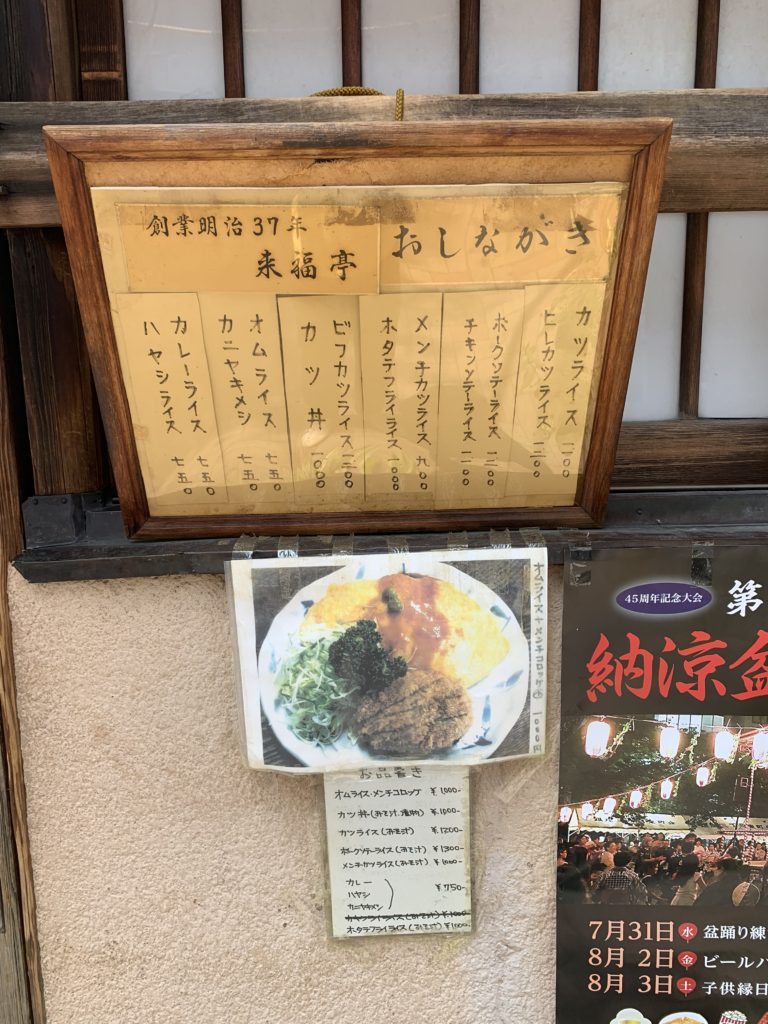 創業明治37年
来福亭
おしながき
カツライス 一二〇〇
ヒレカツライス 一三〇〇
ポークソテーライス 一三〇〇
チキンソテーライス 一一〇〇
メンチカツライス 九〇〇
ホタテフライライス 一〇〇〇
ビフカツライス 一三〇〇
カツ丼 一〇〇〇
オムライス 七五〇
カニヤキメシ 七五〇
カレーライス 七五〇
ハヤシライス 七五〇
オムライス+メンチコロッケ 一〇〇〇円
お品書き
オムライス・メンチコロッケ ¥1000-
カツ丼(みそ汁,漬物) ¥1000-
カツライス(みそ汁) ¥1200-
ポークソテーライス(みそ汁) ¥1300-
メンチカツライス(みそ汁) ¥1000-
カレー
ハヤシ
カニヤキメシ
¥750-
ホタテフライライス(みそ汁) ¥1000-
45周年記念大会
第
納涼盆
7月31日水 盆踊り練
8月 2日金 ビール
8月 3日土 子供縁日